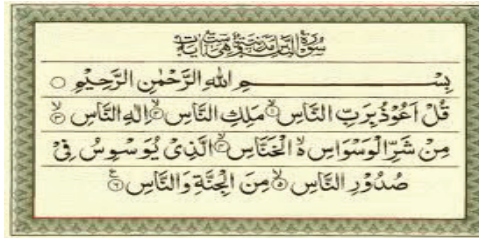 سُوْرَةُ النَّاسِ مَدَنِيَّةٌ وَّهِیَ سِتُّ اٰيَاتٍ
بِسْــــــــــــــمِ اللهِ الرَّحْمٰنِ الرَّحِيْمِ ○
قُلْ اَعُوْذُ بِرَبِّ النَّاسِ ۙ﴿۱﴾ مَلِكِ النَّاسِ ۙ﴿۲﴾ اِلٰهِ النَّاسِ ۙ﴿۳﴾
مِنْ شَرِّ الْوَسْوَاسِ ۵ۙ الْخَنَّاسِ ۙ﴿۴﴾ الَّذِیْ يُوَسْوِسُ فِیْ
صُدُوْرِ النَّاسِ ۙ﴿۵﴾ مِنَ الْجِنَّةِ وَالنَّاسِ ﴿۶﴾ ع